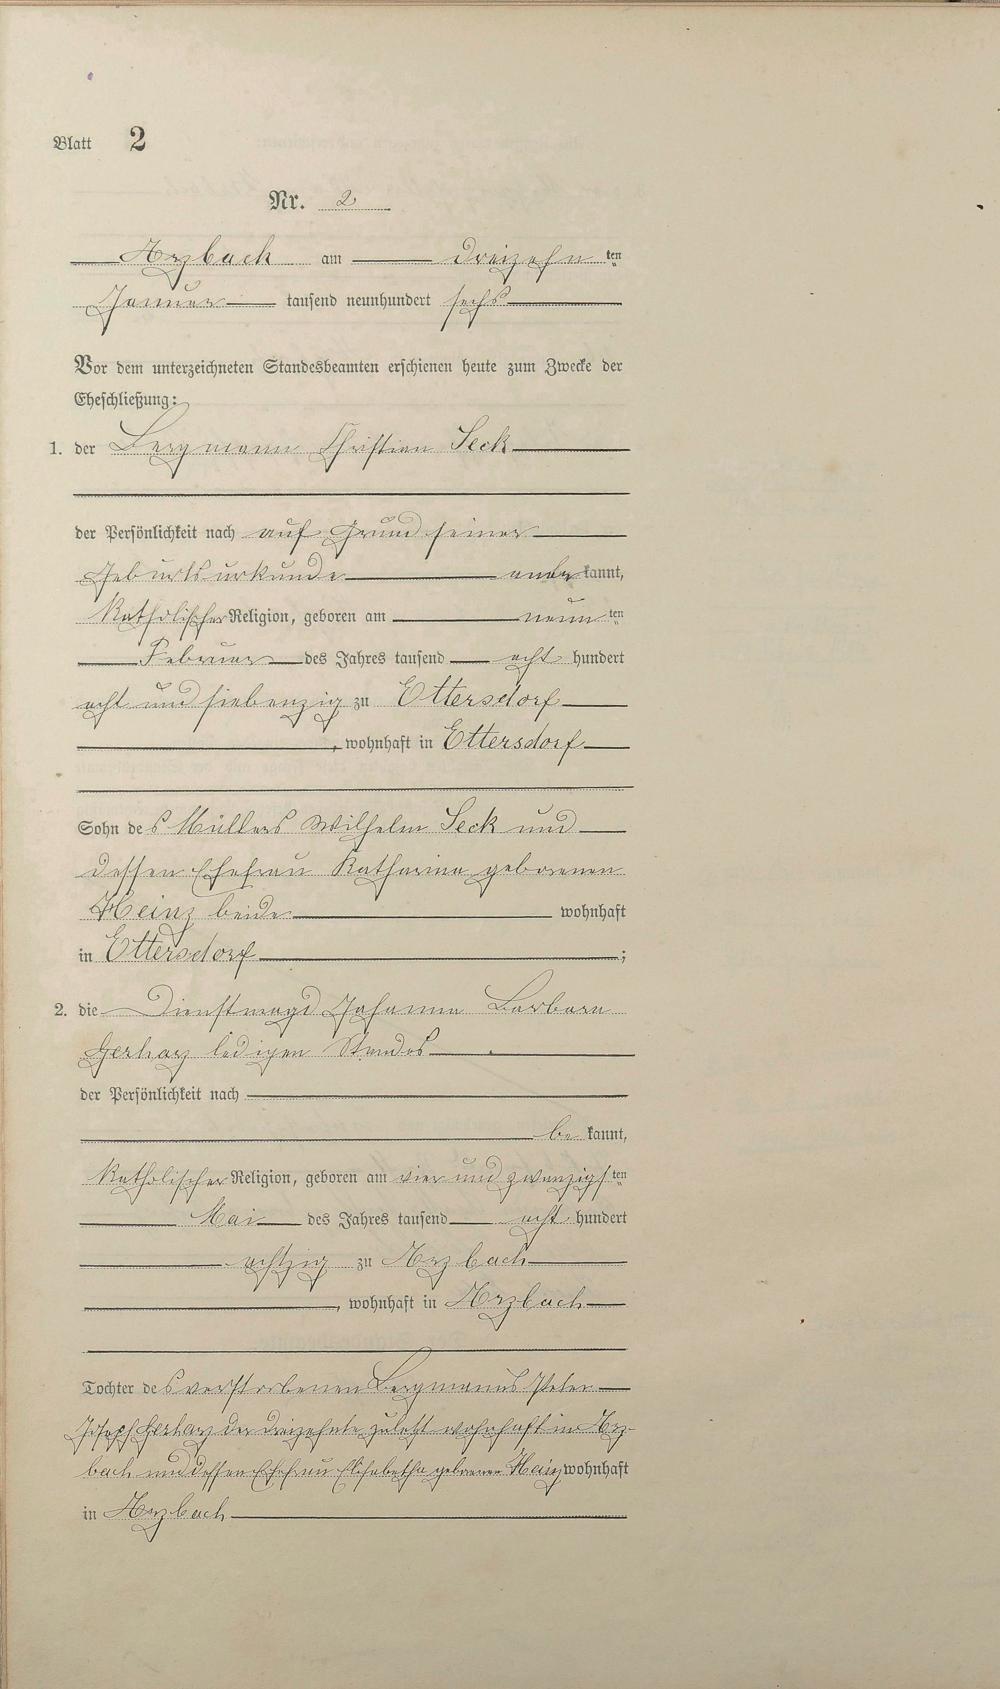 Blatt 2
Nr. 2
Arzbach am dreizehnten
Januar tausend neunhundert sechs
Vor dem unterzeichneten Standesbeamten erschienen heute zum Zwecke der
Eheschließung:
1. der Bergmann Christian Seck
der Persönlichkeit nach auf Grund seiner
Geburtsurkunde anerkannt,
katholischer Religion, geboren am neunten
Februar des Jahres tausend acht hundert
acht und siebenzig zu Ettersdorf
, wohnhaft in Ettersdorf
Sohn des Müllers Wilhelm Seck und
dessen Ehefrau Katharina geborenen
Heinz beide wohnhaft
in Ettersdorf ;
2. die Dienstmagd Johanna Barbara
Gerharz ledigen Standes
der Persönlichkeit nach
bekannt,
katholischer Religion, geboren am vier und zwanzigsten
Mai des Jahres tausend acht hundert
achtzig zu Arzbach
, wohnhaft in Arzbach
Tochter des verstorbenen Bergmanns Peter
Joseph Gerharz der dreizehnte zuletzt wohnhaft in Arz-
bach und dessen Ehefrau Elisabetha geborenen wohnhaft
in Arzbach